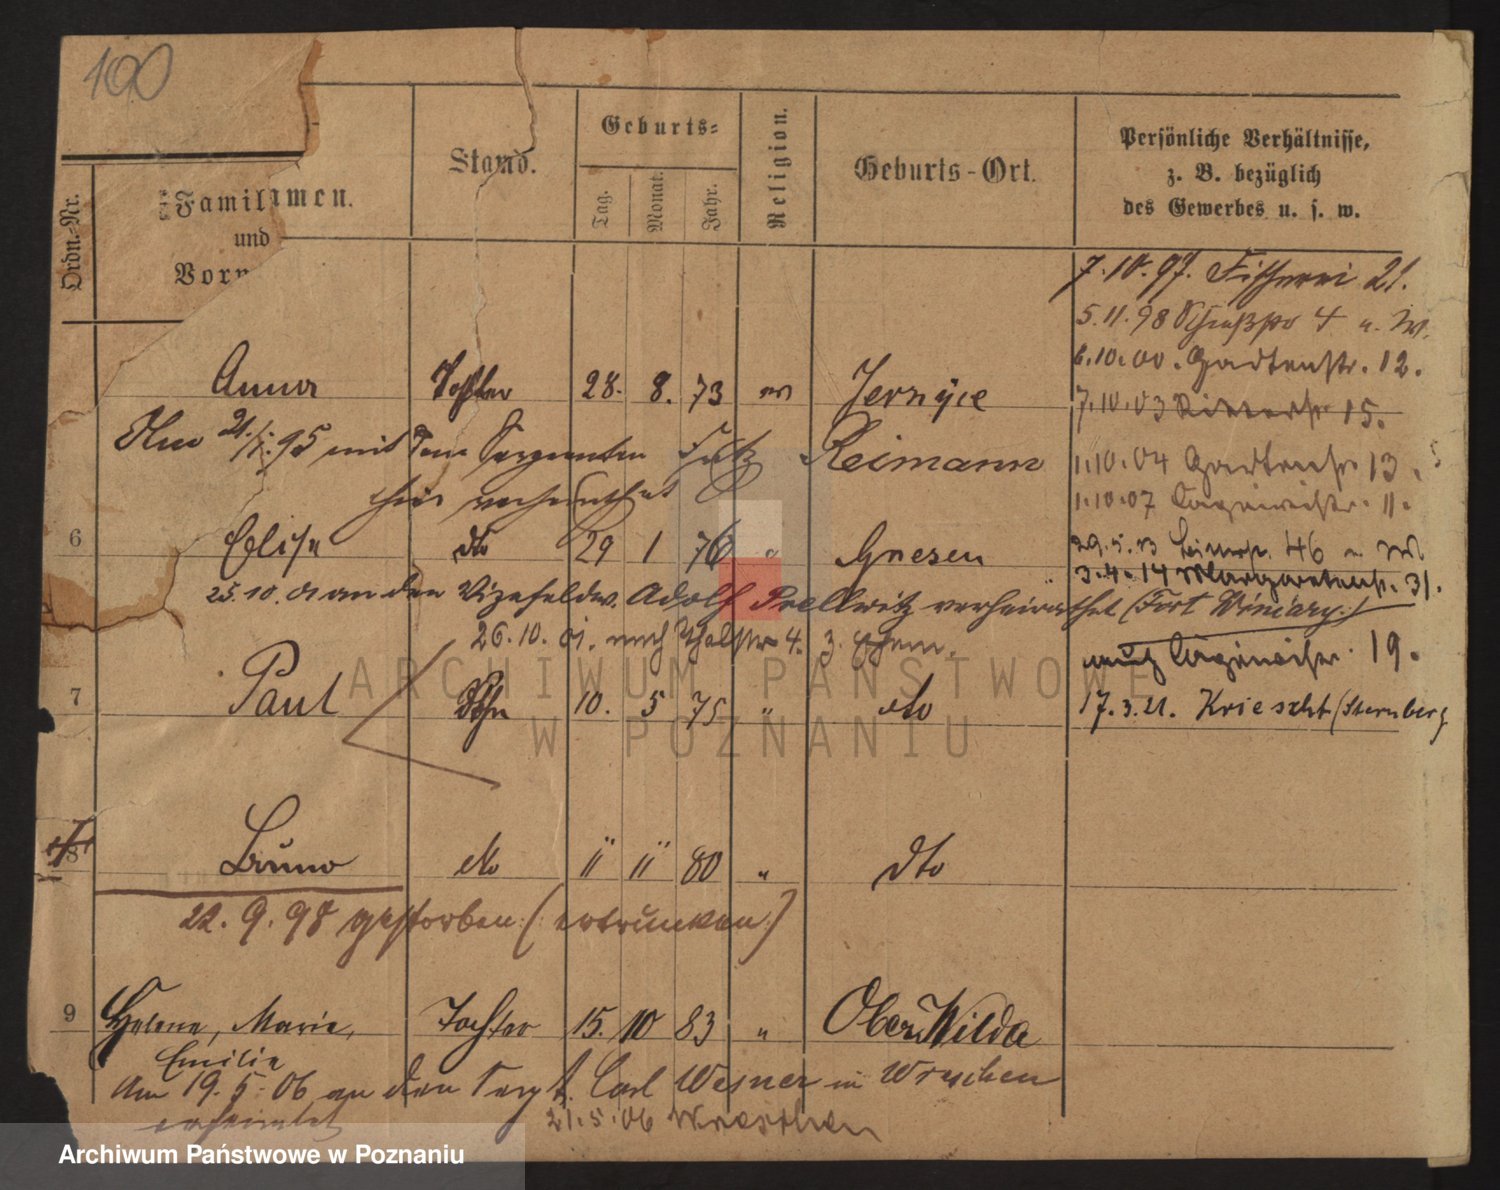 100
Ordn.-Nr.
Familiennamen.
und
Vorn
Stand.
Geburts=
Tag.
Monat.
Jahr.
Religion.
Geburts-Ort.
Persönliche Verhältnisse,
z. B. bezüglich
des Gewerbes u. s. w.
7.10.97. Fischerei 21.
5.11.98 Schießstr 4 u. W.
6.10.00. Gartenstr. 12.
7.10.03 Ritterstr 15.
Anna Tochter 28. 8. 73 ev Jerzyce
Am 21/1.95 mit dem Sergeanten Reimann
1.10.04 Gartenstr 13.
hier verheirathet
1.10.07 11.
6 Elise dto 29 1 76 " Gnesen
29.5.13 46 u. W.
3.4.14 Margaretenstr. 31.
25.10.01 an den Vizefeldw. Adolf Prellwitz verheirathet (Fort Winiary.)
26.10.01. nach 4. 3.
19.
7 Paul Sohn 10. 5 75 " dto
17.3.21. Kriescht (Sternberg
8 Bruno dto 11 11 80 " dto
22.9.98 gestorben (ertrunken)
9 Helene, Marie, Tochter 15. 10 83 " Ober Wilda
Emilie
Am 19.5.06 an den Sergt. Carl Wesner in Wreschen
verheiratet 21.5.06 Wreschen
ARCHIWUM PAŃSTWOWE
W POZNANIU
Archiwum Państwowe w Poznaniu